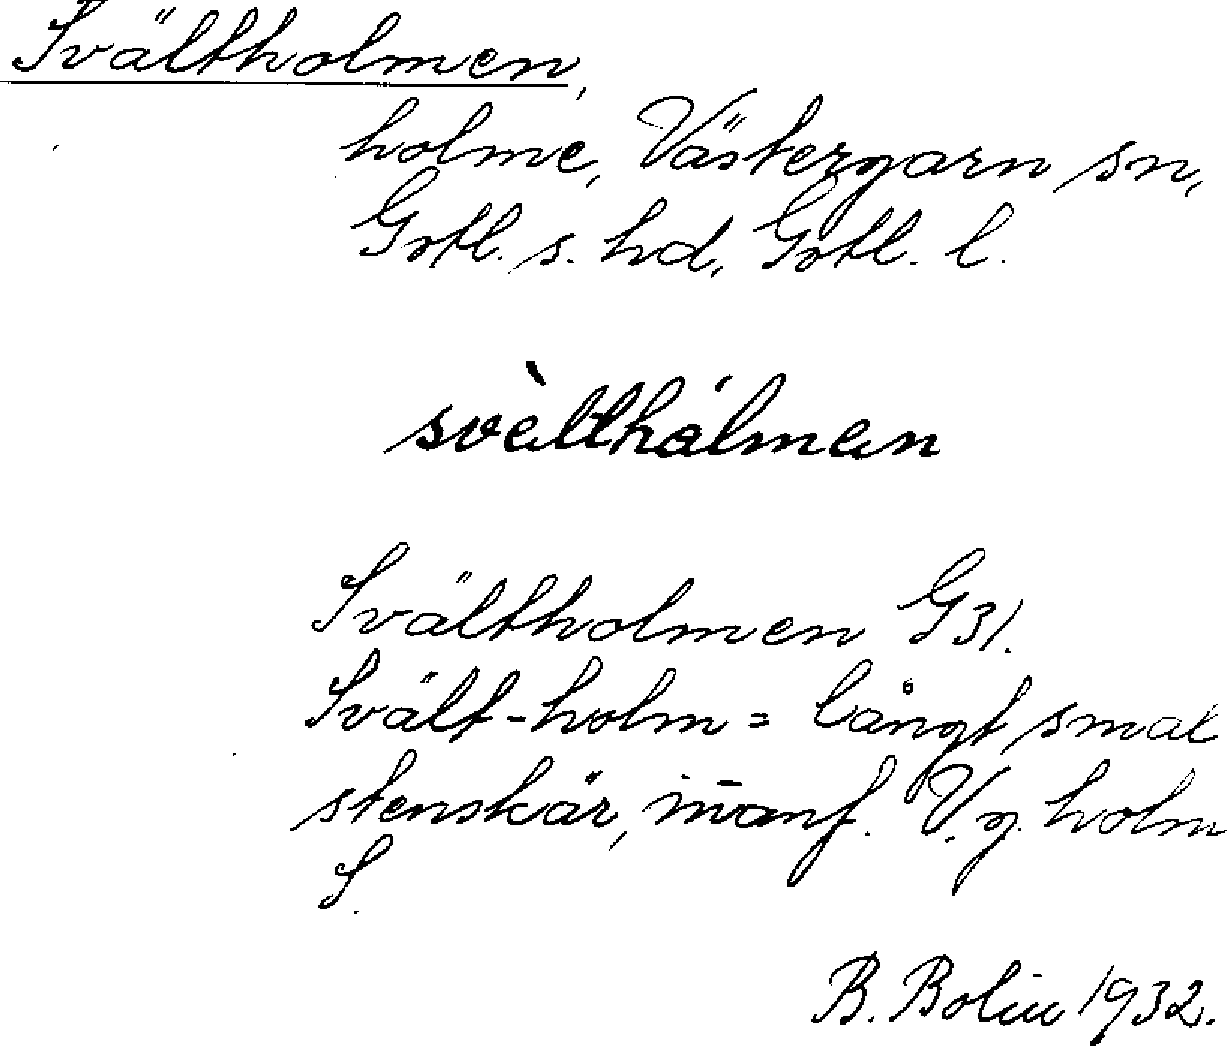 Svältholmen,
holme, Västergarn sn,
Gotl. s. hd, Gotl. l.
svèlthålmen
Svältholmen G31.
Svält-holm = långt smal
stenskär, V.g. holm
S.
B. Bolin 1932.